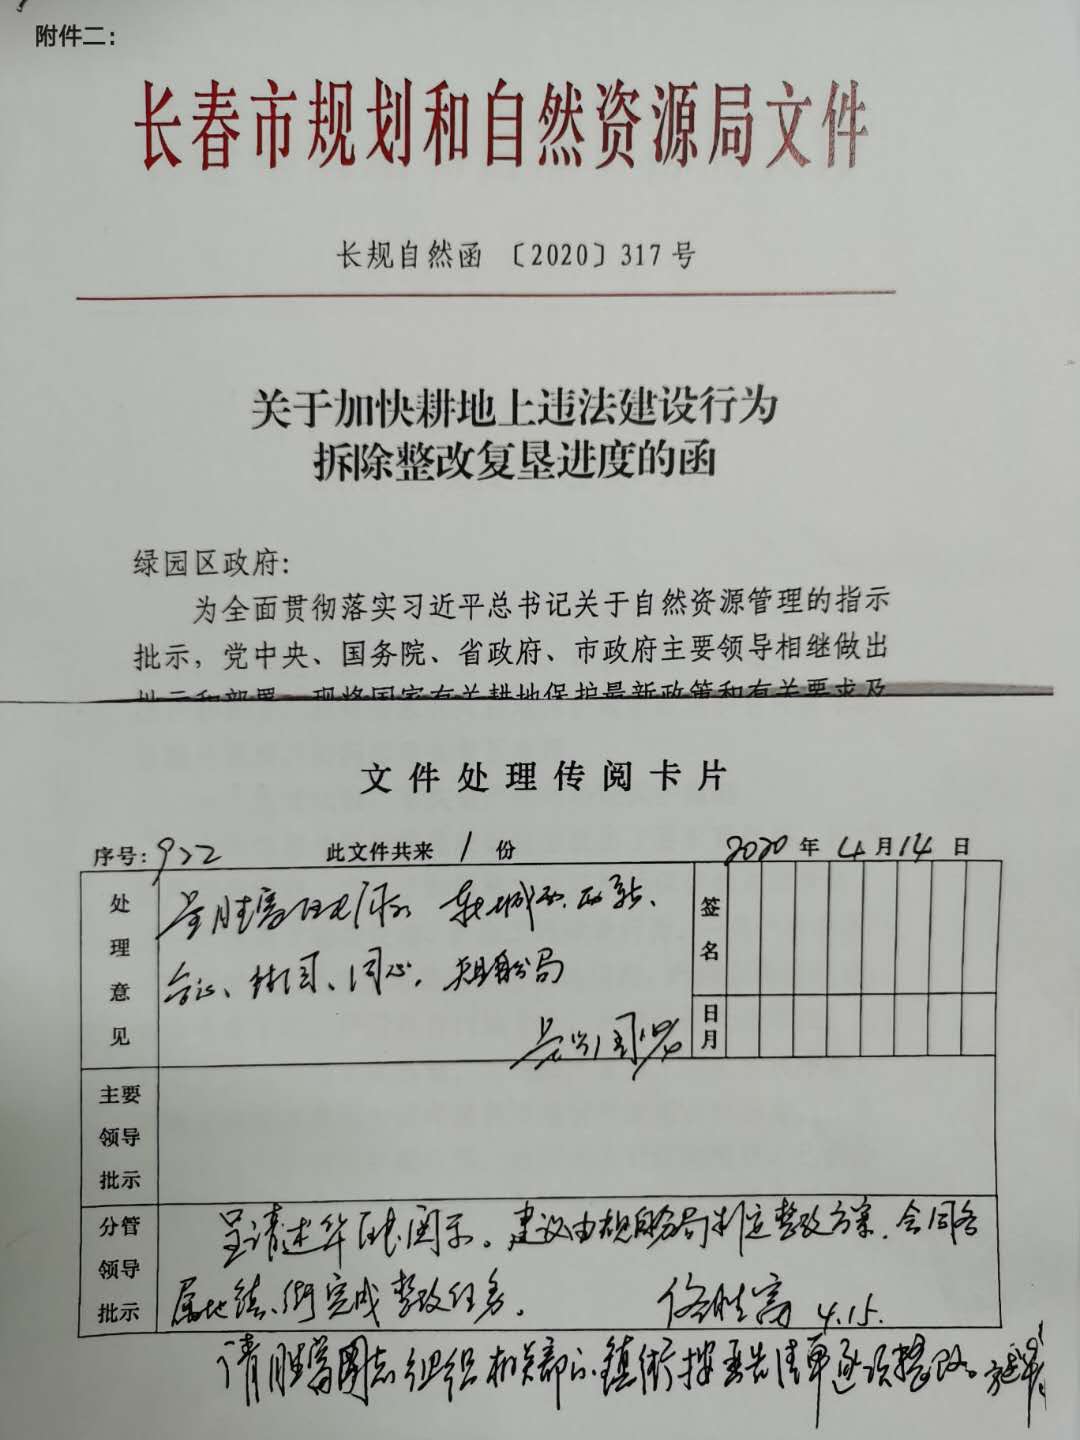 附件二：
长春市规划和自然资源局文件
长规自然函〔2020〕317号
关于加快耕地上违法建设行为
拆除整改复垦进度的函
绿园区政府：
为全面贯彻落实习近平总书记关于自然资源管理的指示
批示，党中央、国务院、省政府、市政府主要领导相继做出
批示和部署，现将国家有关耕地保护最新政策和有关要求及
文件处理传阅卡片
序号：922 此文件共来 1 份 2020 年 4 月 14 日
处理意见
签名
日月
主要领导批示
分管领导批示
呈请述华区长阅示。建议由规自分局制定整改方案，会同各
属地镇、街完成整改任务。 佟胜富 4.15.
请胜富同志组织相关部门、镇街按要求清单逐项整改。